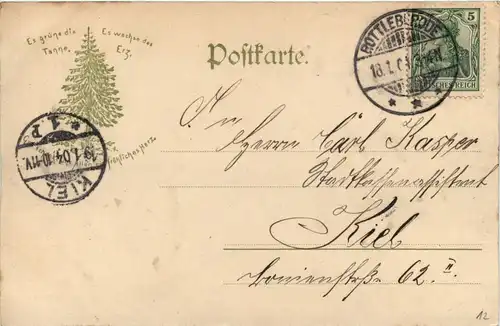 Es grüne die Es wachse das
Tanne, Erz.
Postkarte.
ROTTLEBERODE
18.1.04
5
DEUTSCHES REICH
An
Herrn Carl Kasper
Stadtkassenassistent
Kiel
62. II.
* 1 P
19.1.04.10-11V.
KIEL
12